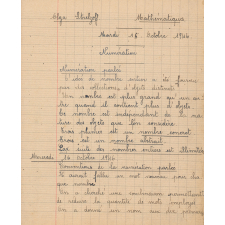 Olga Mathématiques
Mardi 15 Octobre 1946
Numération
Numération parlée
L'idée de nombre entier a été fournie
par des collections d'objets distincts
Un nombre est plus grand qu'un au
tre quand il contient plus d'objets
Le nombre est indépendant de la na
ture des objets que l'on considère
trois plumes est un nombre concret
trois est un nombre abstrait
La suite des nombres entiers est illimitée
Mercredi 16 Octobre 1946
Conventions de la numération parlée
Il aurait fallu un mot nouveau pour cha
que nombre
On a cherché une combinaison permettant
de réduire la quantité de mots employés
On a donné un nom aux dix premiers